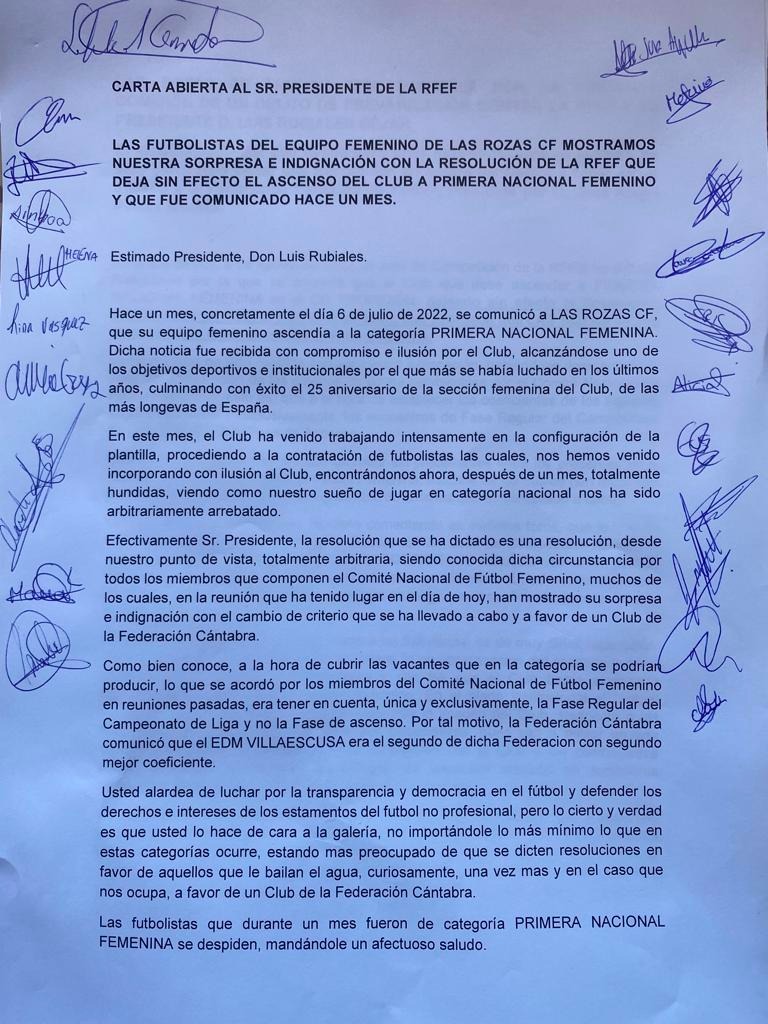 CARTA ABIERTA AL SR. PRESIDENTE DE LA RFEF
LAS FUTBOLISTAS DEL EQUIPO FEMENINO DE LAS ROZAS CF MOSTRAMOS
NUESTRA SORPRESA E INDIGNACIÓN CON LA RESOLUCIÓN DE LA RFEF QUE
DEJA SIN EFECTO EL ASCENSO DEL CLUB A PRIMERA NACIONAL FEMENINO
Y QUE FUE COMUNICADO HACE UN MES.
Estimado Presidente, Don Luis Rubiales.
HELENA
Hace un mes, concretamente el día 6 de julio de 2022, se comunicó a LAS ROZAS CF,
que su equipo femenino ascendía a la categoría PRIMERA NACIONAL FEMENINA.
Dicha noticia fue recibida con compromiso e ilusión por el Club, alcanzándose uno de
los objetivos deportivos e institucionales por el que más se había luchado en los últimos
años, culminando con éxito el 25 aniversario de la sección femenina del Club, de las
más longevas de España.
En este mes, el Club ha venido trabajando intensamente en la configuración de la
plantilla, procediendo a la contratación de futbolistas las cuales, nos hemos venido
incorporando con ilusión al Club, encontrándonos ahora, después de un mes, totalmente
hundidas, viendo como nuestro sueño de jugar en categoría nacional nos ha sido
arbitrariamente arrebatado.
Efectivamente Sr. Presidente, la resolución que se ha dictado es una resolución, desde
nuestro punto de vista, totalmente arbitraria, siendo conocida dicha circunstancia por
todos los miembros que componen el Comité Nacional de Fútbol Femenino, muchos de
los cuales, en la reunión que ha tenido lugar en el día de hoy, han mostrado su sorpresa
e indignación con el cambio de criterio que se ha llevado a cabo y a favor de un Club de
la Federación Cántabra.
Como bien conoce, a la hora de cubrir las vacantes que en la categoría se podrían
producir, lo que se acordó por los miembros del Comité Nacional de Fútbol Femenino
en reuniones pasadas, era tener en cuenta, única y exclusivamente, la Fase Regular del
Campeonato de Liga y no la Fase de ascenso. Por tal motivo, la Federación Cántabra
comunicó que el EDM VILLAESCUSA era el segundo de dicha Federacion con segundo
mejor coeficiente.
Usted alardea de luchar por la transparencia y democracia en el fútbol y defender los
derechos e intereses de los estamentos del futbol no profesional, pero lo cierto y verdad
es que usted lo hace de cara a la galería, no importándole lo más mínimo lo que en
estas categorías ocurre, estando mas preocupado de que se dicten resoluciones en
favor de aquellos que le bailan el agua, curiosamente, una vez mas y en el caso que
nos ocupa, a favor de un Club de la Federación Cántabra.
Las futbolistas que durante un mes fueron de categoría PRIMERA NACIONAL
FEMENINA se despiden, mandándole un afectuoso saludo.